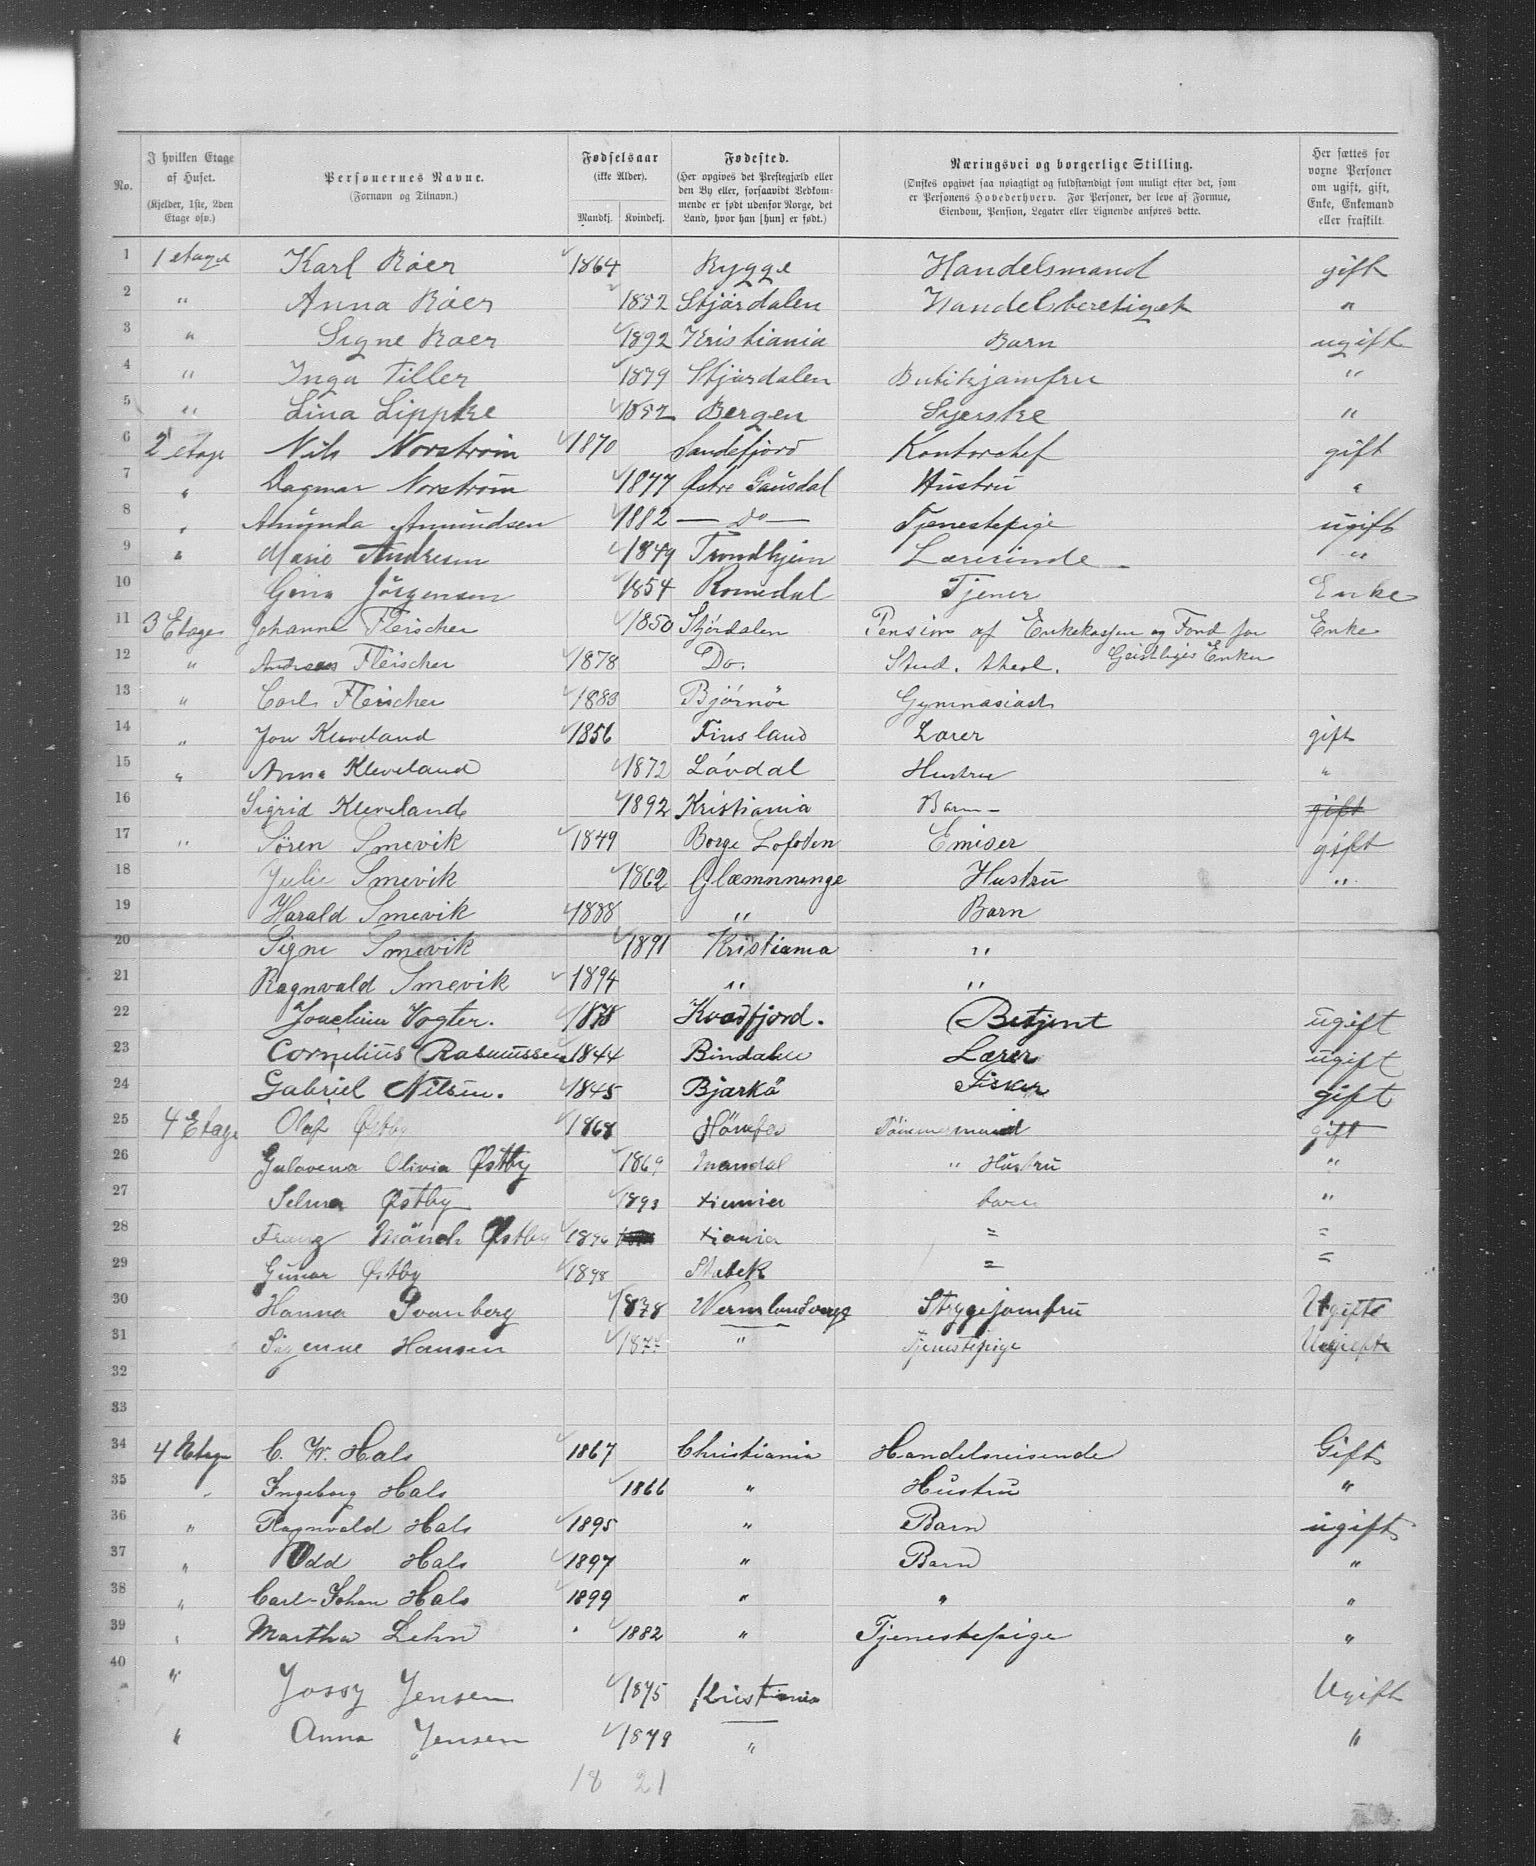 No. | I hvilken Etage af Huset. (Kjelder, 1ste, 2den Etage osv.) | Personernes Navne. (Fornavn og Tilnavn.) | Fødselsaar (ikke Alder). Mandkj. Kvindekj. | Fødested. (Her opgives det Prestegjæld eller den By eller, forsaavidt Vedkommende er født udenfor Norge, det Land, hvor han [hun] er født.) | Næringsvei og borgerlige Stilling. (Ønskes opgivet saa nøiagtigt og fuldstændigt som muligt efter det, som er Personens Hovederhverv. For Personer, der leve af Formue, Eiendom, Pension, Legater eller Lignende anføres dette. | Her sættes for voxne Personer om ugift, gift, Enke, Enkemand eller fraskilt.
1 1 etage Karl Röer 1864 Rygge Handelsmand gift
2 " Anna Röer 1852 Stjördalen Handelsberetiget "
3 " Signe Röer 1892 Kristiania Barn ugift
4 " Inga Tiller 1879 Stjördalen Butikjomfru "
5 " Lina Lippke 1852 Bergen Syerske "
6 2 etage Nils Norström 1870 Sandefjord Kontorchef gift
7 " Dagmar Norström 1877 Østre Gausdal Hustru "
8 " Amunda Amundsen 1882 — Do — Tjenestepige ugift
9 " Marie Andresen 1849 Trondhjem Lærerinde "
10 Gina Jörgensen 1854 Romedal Tjener Enke
11 3 Etage Johanne Fleischer 1850 Stjördalen Pension af Enkekassen og Fond for Geistliges Enker Enke
12 " Andreas Fleischer 1878 Do. Stud. theol.
13 " Carl Fleischer 1883 Bjørnör Gymnasiast
14 " Jon Kleveland 1856 Finsland Lærer gift
15 " Anna Kleveland 1872 Lövdal Hustru "
16 Sigrid Kleveland 1892 Kristiania Barn gift
17 " Sören Smevik 1849 Borge Lofoten Emisær gift
18 Julie Smevik 1862 Glæmnninge Hustru "
19 Harald Smevik 1888 " Barn
20 Signe Smevik 1891 Kristiania "
21 Ragnvald Smevik 1894 " "
22 Joachim Vogter. 1878 Kvædfjord. Betjent ugift
23 Cornelius Rasmussen 1844 Bindalen Lærer ugift
24 Gabriel Nilsen. 1845 Bjarkö Fisker gift
25 4 Etage Olaf Østby 1868 Hönefos Tömmermand gift
26 Olivia Østby 1869 Mandal " Hustru "
27 Selma Østby 1893 barn "
28 Mönch Østby "
29 Gunar Østby 1898 Stabek "
30 Hanna Svanberg 1878 Strygejomfru Ugift
31 Hansen 1877 " Tjenestepige Ugift
32
33
34 4 Etage C. Fr. Hals 1867 Christiania Handelsreisende Gift
35 " Ingeborg Hals 1866 " Hustru "
36 " Ragnvald Hals 1895 " Barn ugift
37 " Odd Hals 1897 " Barn "
38 " Carl-Johan Hals 1899 " " "
39 " Martha Lehn 1882 " Tjenestepige "
40 " Jossy Jensen 1875 Kristiania Ugift
" Anna Jensen 1879 " "
18 21